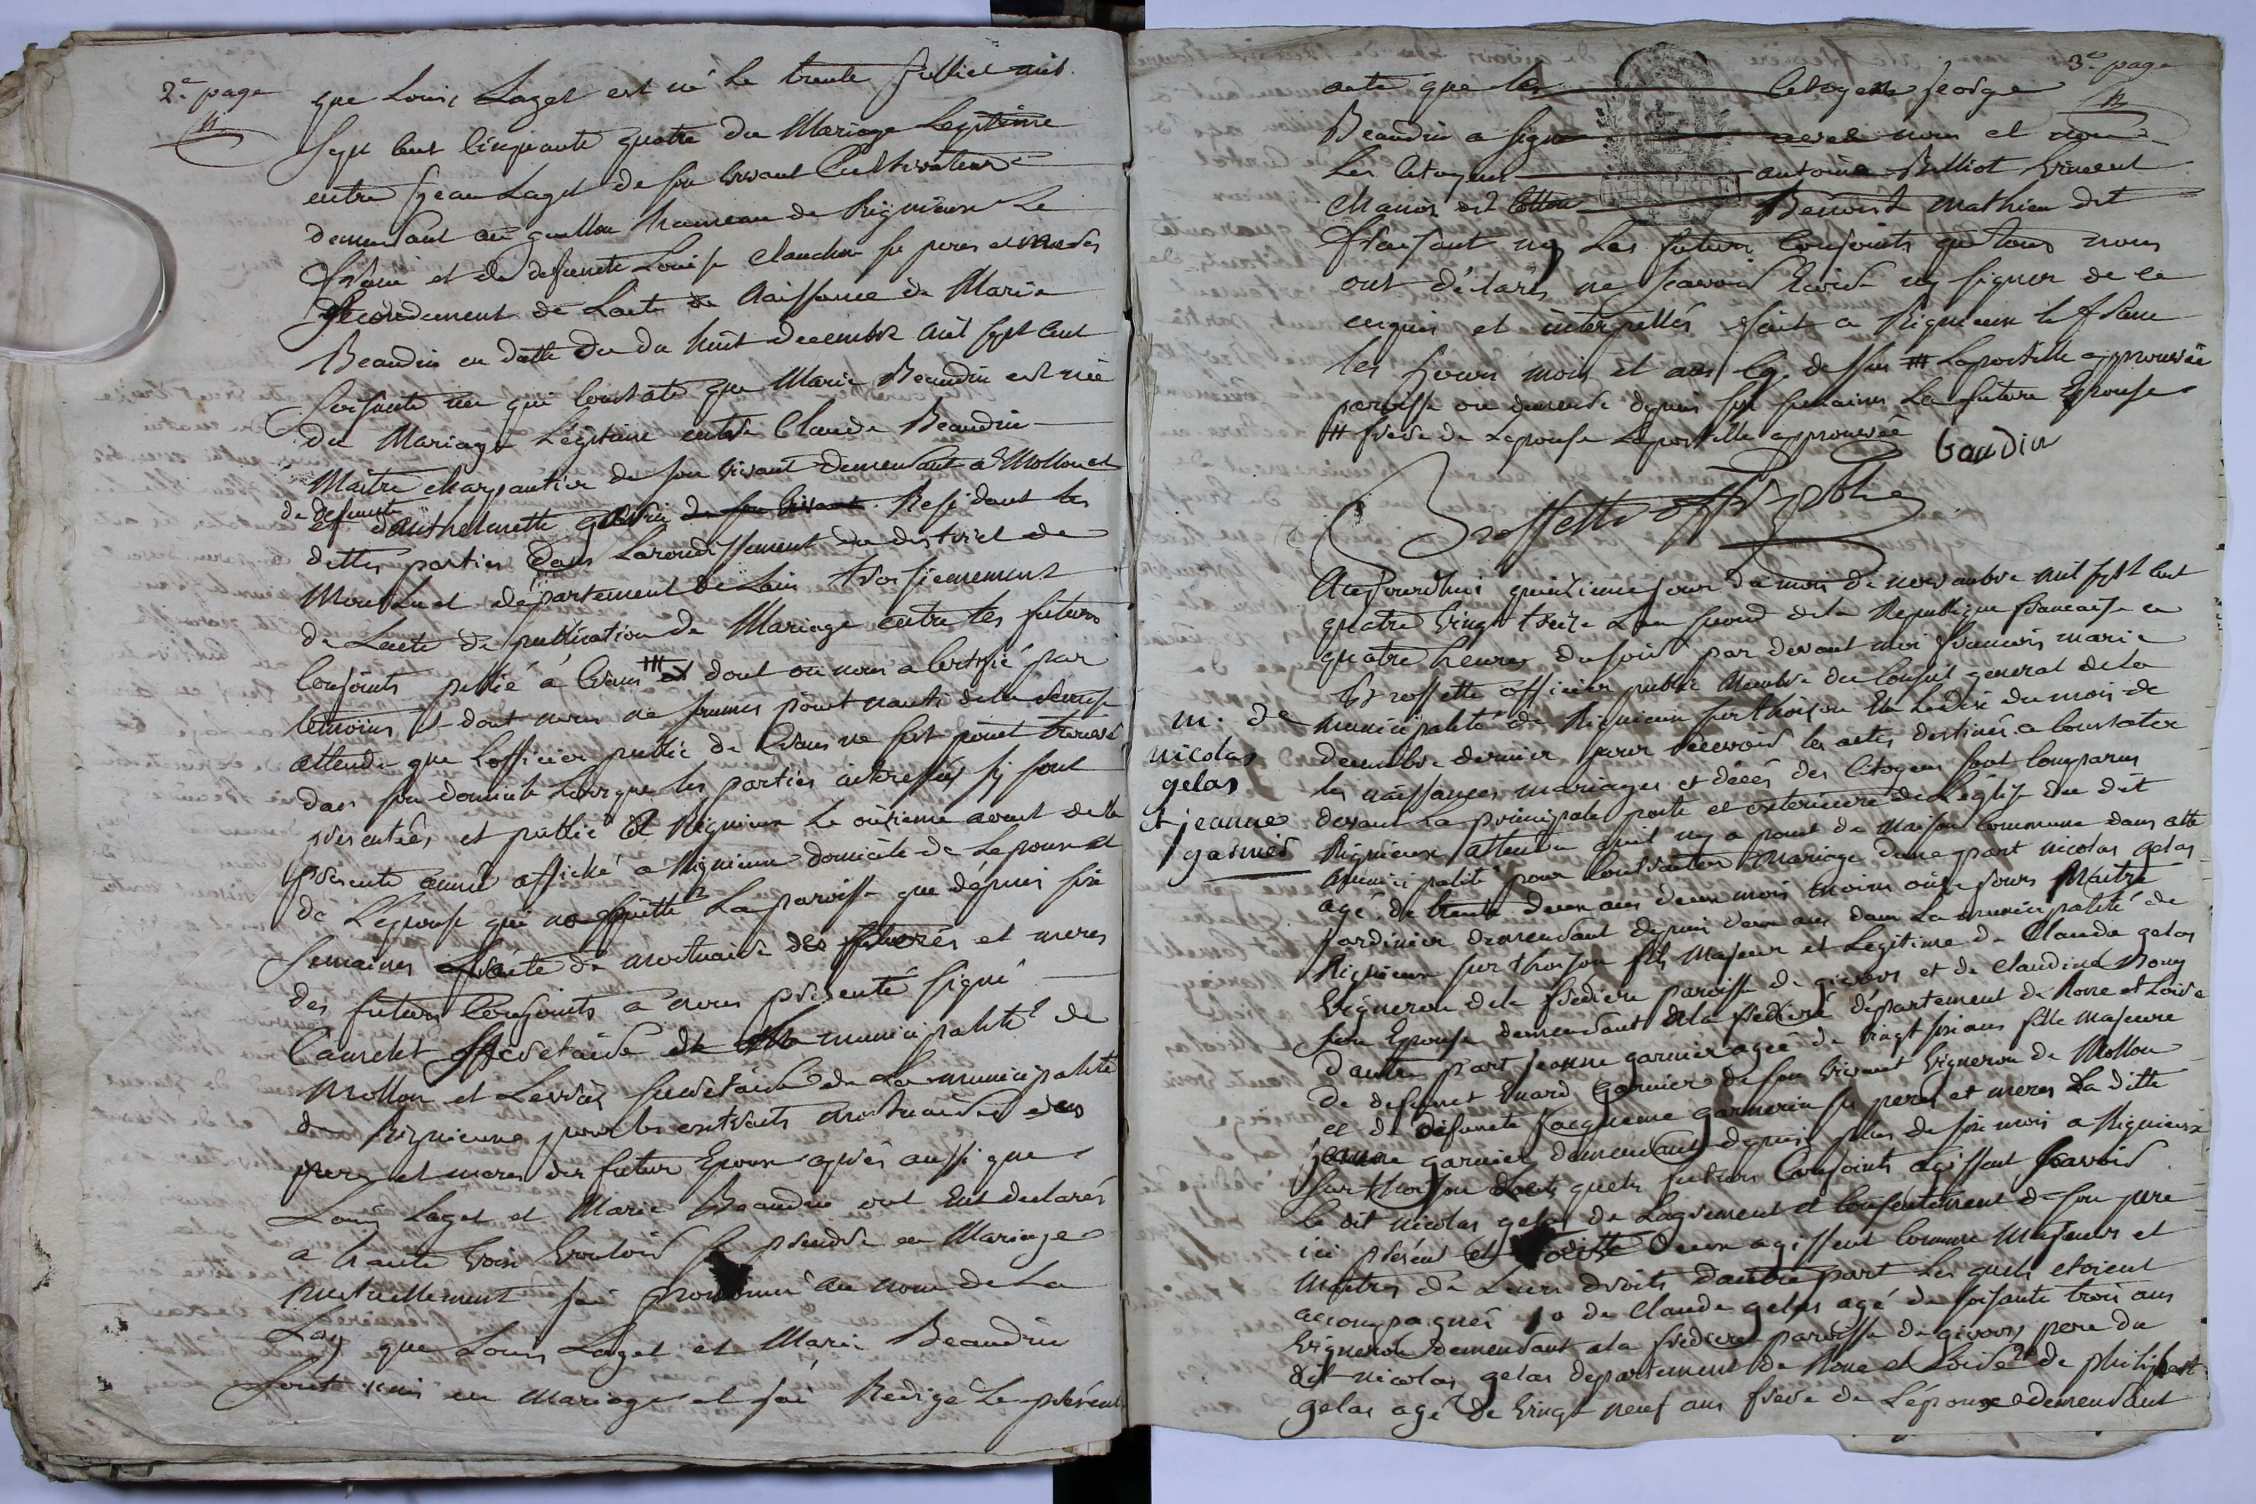 2.e page
que Louis Laget est né le trente juillet mil
sept cent cinquante quatre du Mariage Legitime
entre jean Laget de son vivant Cultivateur
demeurant au guillon hameau de Rignieux le
franc et de defuncte Louise Clauchon ses peres et meres
secondement de Lacte de Naissance de Marie
Beaudin en datte du du huit decembre mil sept cent
soixante un qui Constate que Marie Beaudin est née
du Mariage Légitime entre Claude Beaudin
Maitre charpantier de son vivant demeurant a Mollon et
de defuncte
et danthelmette de son vivant Residant les
dittes parties dans Larondissement du district de
Montluel département de Lain troisiemement
de Lacte de publication de Mariage entre les futurs
Conjoints publié à Crans et dont on nous a Certifié par
temoins et dont nous ne sommes point nanti de la
attendu que Lofficier public de Crans ne sest point trouvé
dans son domicile Lorsque les parties interessées sy sont
presentées et publié a Rignieux le onzieme avant de la
presente année affiché a Rignieux domicile de Lepoux et
de Lépouse qui no quitté La paroisse que dépuis six
Semaines de mortuaire des peres et meres
des futurs Conjoints a nous présenté signé
Caurelet secretaire de la municipalité de
Mollon et secretaire de La municipalité
de Rignieux pour les extraits mortuaires des
peres et meres des futur Epoux après aussi que
Louis Laget et Marie Beaudin ont Eut declarés
a haute voix vouloir se prendre en Mariage
mutuellement jai prononcé au nom de La
Loy que Louis Laget et Marie Beaudin
sont unis en Mariage et jai Redigé Le présent
3.e page
acte que les Citoyens george
Beaudin a signé avec nous et non
Les Citoyens antoine Billiot Vincent
Chanos dit Cotton Benoist Mathieu dit
ny Les futurs Conjoints qui tous nous
ont déclarés ne scavoir Ecrire ny signer de ce
enquis et interpellés fait a Rignieux le franc
les jours mois et an que dessus # Lapostille approuvée
paroisse ou demeure depuis six semaines La future Epouse
# frere de Lepouse Lapostille approuvée
Baudin
Brossette off. public
Aujourdhui quinzieme jour du mois de novembre mil sept cent
quatre vingt treize Lan second dela Republique francaise a
quatre heures du soir par devant moi francois marie
Brossette officier public Membre du Conseil general dela
municipalité de Rignieux sur thoison Elu Le dix du mois de
decembre dernier pour recevoir les actes destinés a Constater
les naissances mariages et décés des Citoyens sont Comparus
devant La principale porte et exterieure de Léglise du dit
Rignieux attendu quil ny a point de Maison Commune dans cette
municipalité pour Constater Mariage dune part nicolas gelas
agé de trente deux ans deux mois moins onze jours Maitre
jardinier demeurant depuis deux ans dans La municipalité de
Rignieux sur thoison fils Majeur et Legitime de Claude gelas
Vigneron dela frediere paroisse de givors et de Claudine Bouy
son Epouse demeurant a la frediere département de Rone et Loire
dautre part jeanne garnier agée de vingt six ans fille Majeure
de defunct Enard garnier de son vivant Vigneron de Mollon
et de defuncte jacqueme garnerin ses peres et meres La ditte
jeanne garnier demeurant depuis plus de six mois a Rignieux
sur thoison Lesquels futurs Conjoints agissant scavoir
le dit nicolas gelas de Lagrément et Consentement de son pere
ici présent et deux agissent Comme Majeurs et
Maitres de Leurs droits dautre part Les quels etoient
accompagnés 1o de Claude gelas agé de soixante trois ans
Vigneron demeurant a la frediere paroisse de givors pere du
dit nicolas gelas departement de Rone et Loire 2o de philibert
gelas agé de vingt neuf ans frere de Lépoux demeurant
m. de
nicolas
gelas
et jeanne
garnier